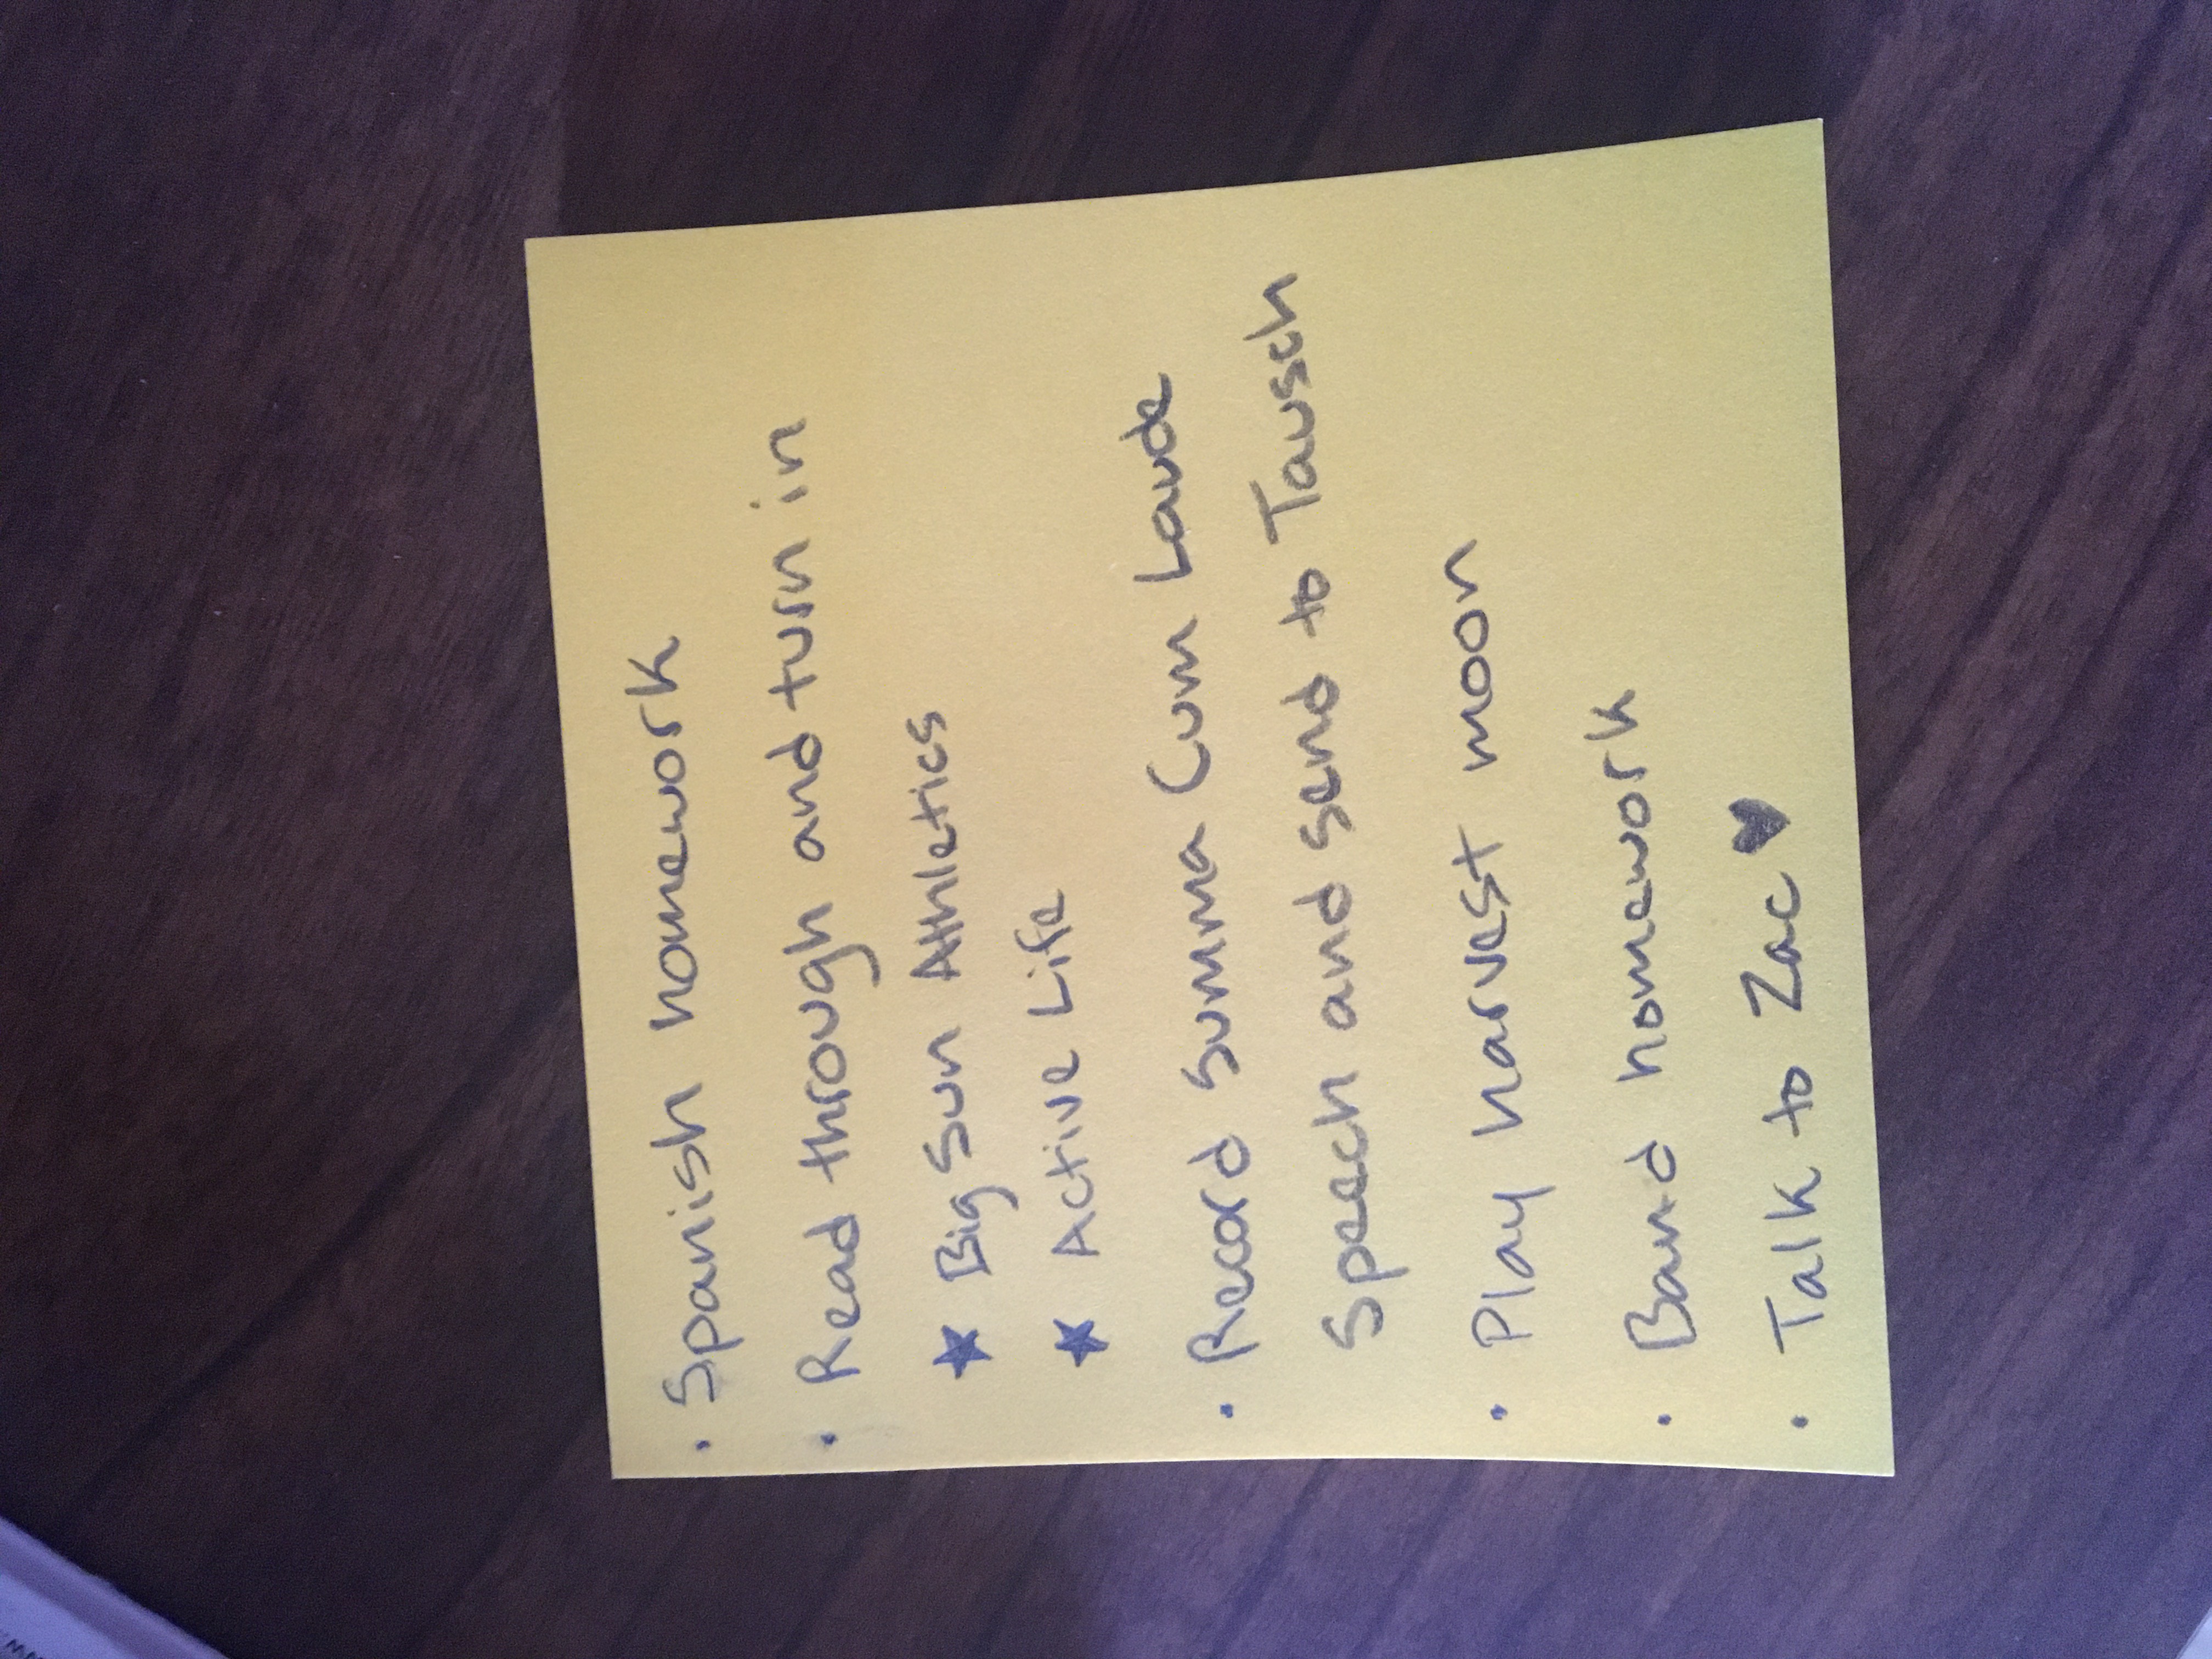 • Spanish homework
• Read through and turn in
★ Big Sun Athletics
★ Active Life
• Record Summa Cum Laude
Speech and send to Tausch
• Play harvest moon
• Band homework
• Talk to Zac ♥